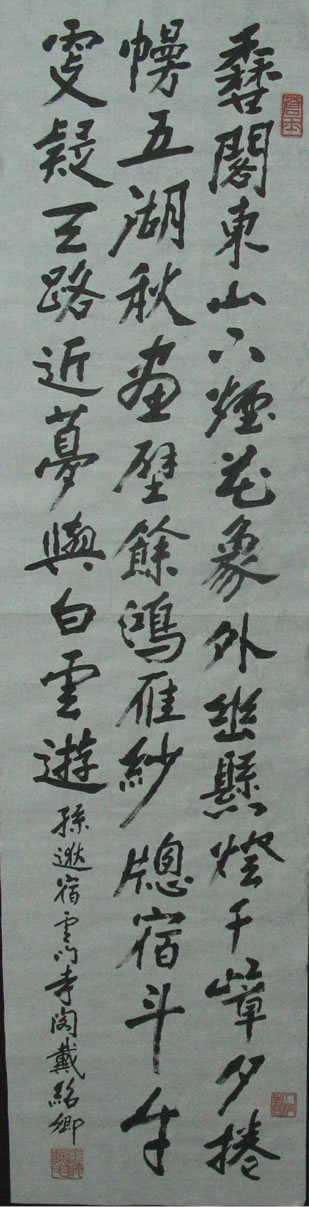 香閣東山下煙花象外幽懸燈千嶂夕捲
幔五湖秋畫壁餘鴻雁紗窗宿斗牛
更疑天路近夢與白雲遊
孫逖宿雲門寺閣戴紹卿